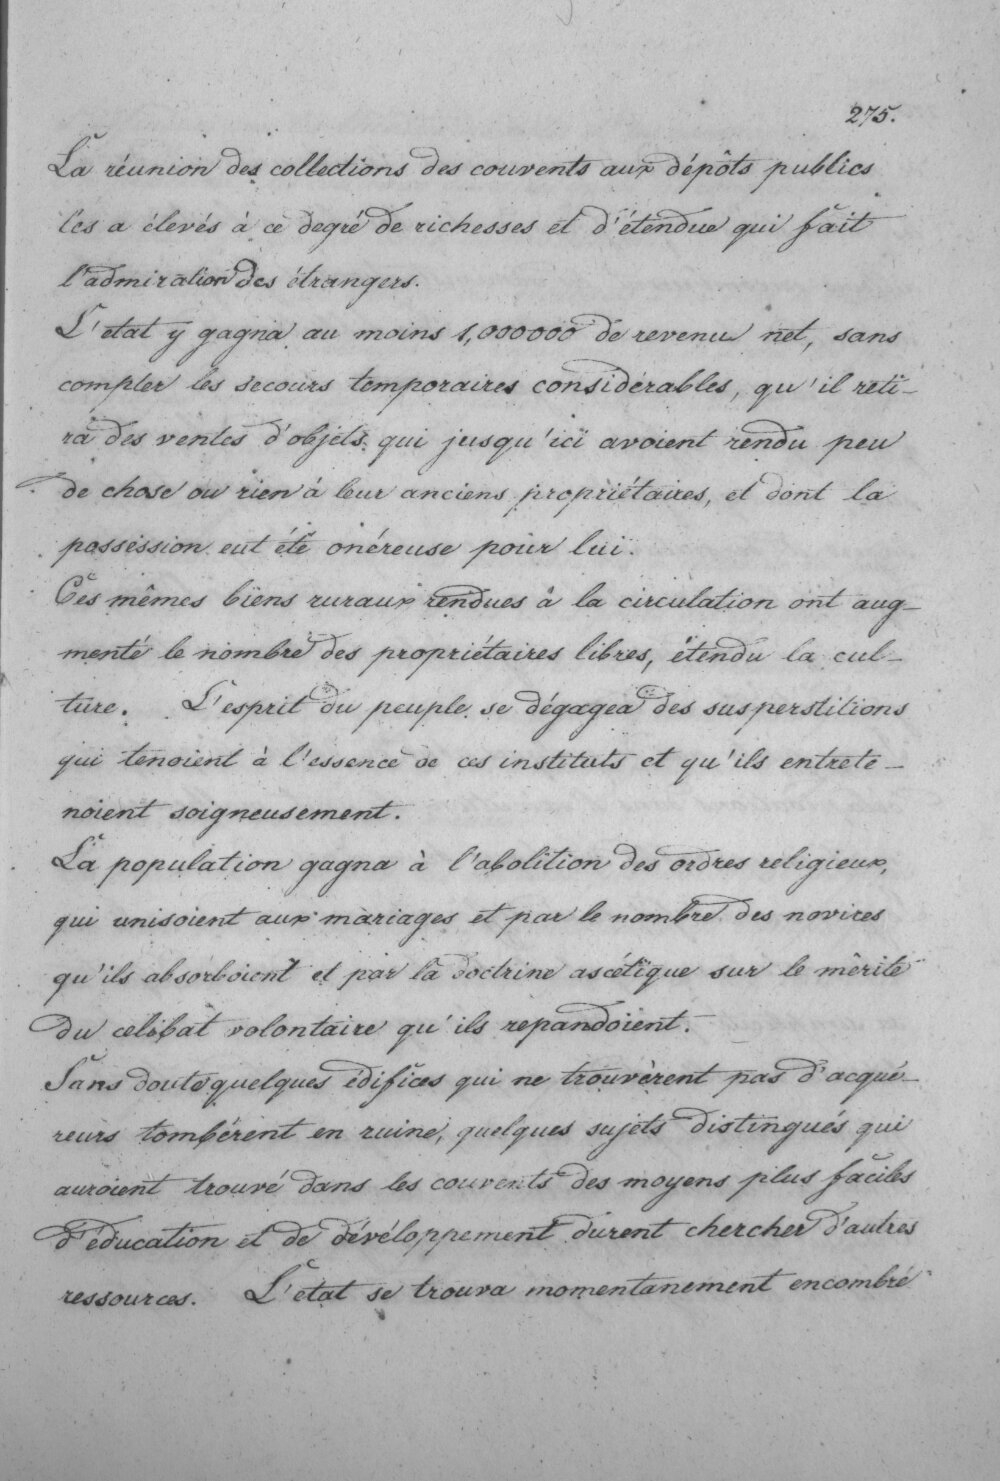 275.
La réunion des collections des couvents aux dépôts publics
les a élevés à ce degré de richesses et d'étendue qui fait
l'admiration des étrangers.
L'etat y gagna au moins 1,000000 de revenu net, sans
compter les secours temporaires considérables, qu'il reti-
ra des ventes d'objets qui jusqu'ici avoient rendu peu
de chose ou rien à leur anciens propriétaires, et dont la
possession eut été onéreuse pour lui.
Ces mêmes biens ruraux rendues à la circulation ont aug-
menté le nombre des propriétaires libres, étendu la cul-
ture. L'esprit du peuple se dégagea des susperstitions
qui tenoient à l'essence de ces instituts et qu'ils entrete-
noient soigneusement.
La population gagna à l'abolition des ordres religieux,
qui unisoient aux mariages et par le nombre des novices
qu'ils absorboient et par la doctrine ascétique sur le mérite
du celibat volontaire qu'ils repandoient.
Sans doute quelques édifices qui ne trouvèrent pas d'acqué-
reurs tombérent en ruine, quelques sujets distingués qui
auroient trouvé dans les couvents des moyens plus faciles
d'éducation et de dévéloppement durent chercher d'autres
ressources. L'etat se trouva momentanement encombré